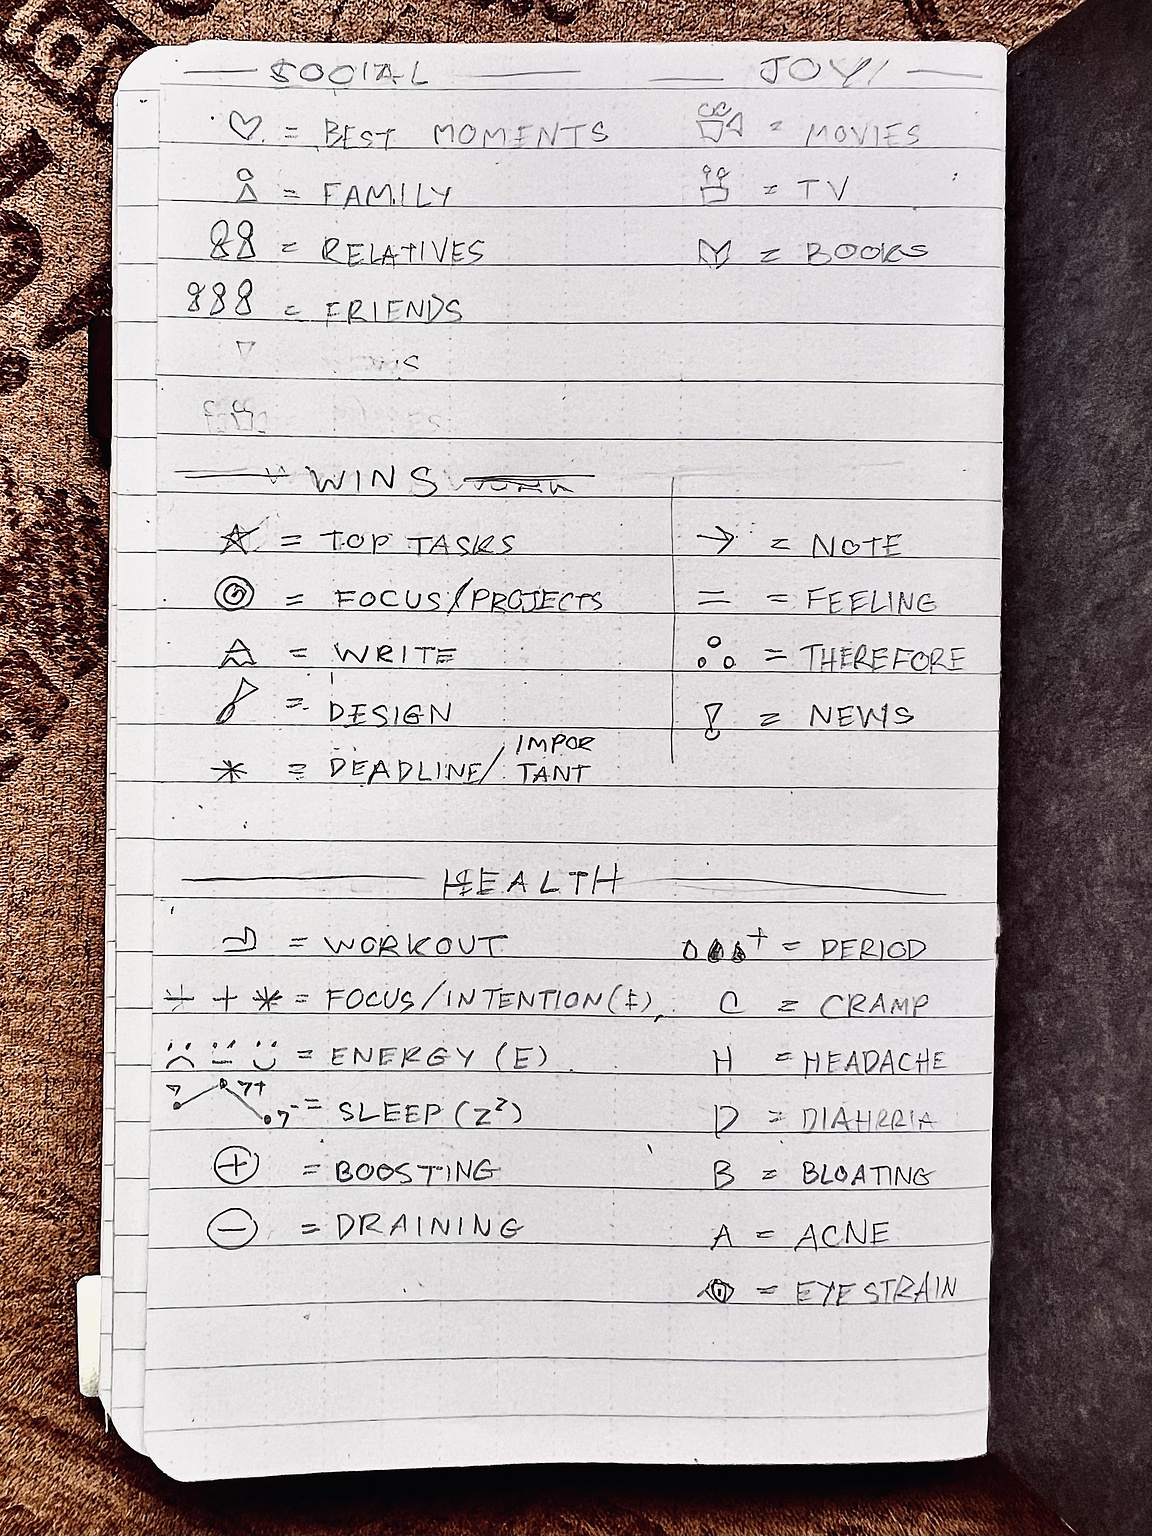 SOCIAL
♡ = BEST MOMENTS
= FAMILY
= RELATIVES
= FRIENDS
JOY!
= MOVIES
= TV
= BOOKS
WINS
☆ = TOP TASKS
◎ = FOCUS/PROJECTS
= WRITE
= DESIGN
* = DEADLINE/IMPOR
TANT
→ = NOTE
= = FEELING
∴ = THEREFORE
= NEWS
HEALTH
= WORKOUT
+ * = FOCUS/INTENTION
= ENERGY (E)
7 7+ 7- = SLEEP (Z²)
⊕ = BOOSTING
⊖ = DRAINING
+ = PERIOD
C = CRAMP
H = HEADACHE
D = DIAHRRIA
B = BLOATING
A = ACNE
= EYE STRAIN